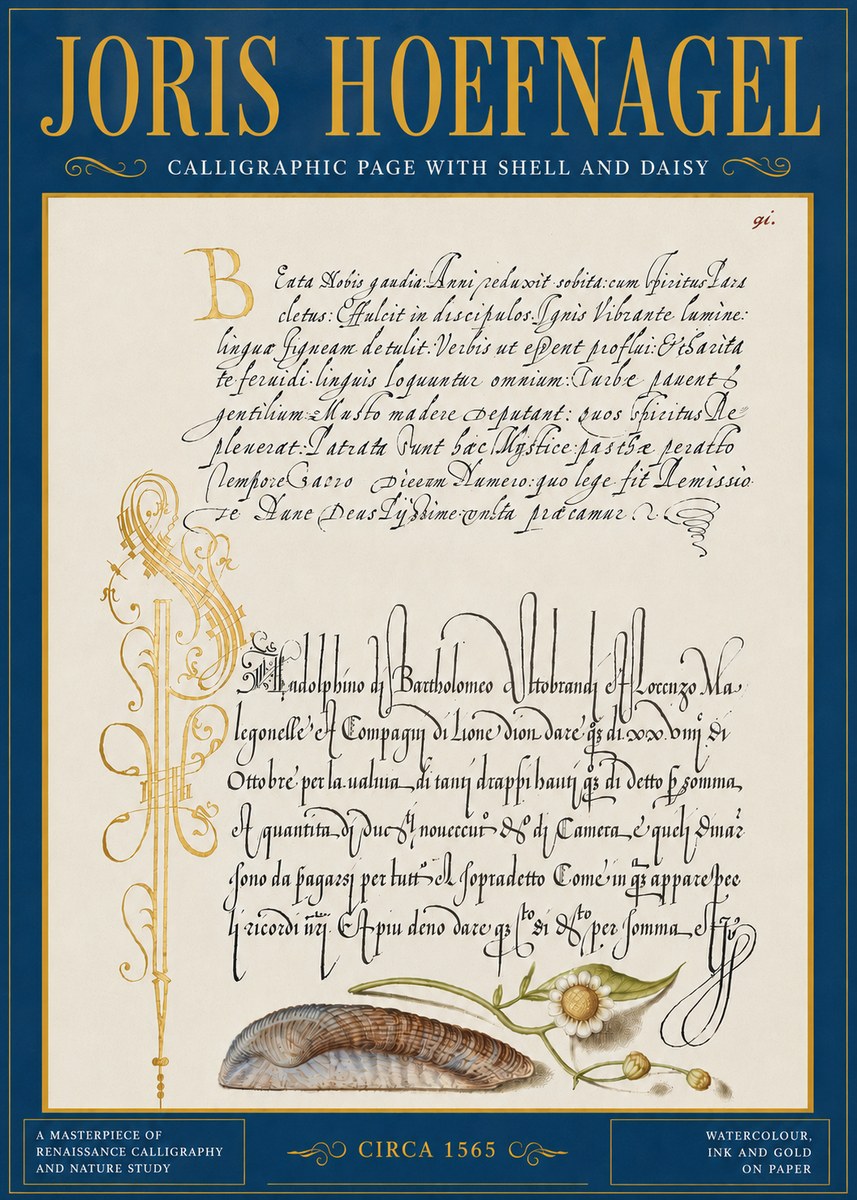 JORIS HOEFNAGEL
CALLIGRAPHIC PAGE WITH SHELL AND DAISY
gi.
B Eata Nobis gaudia: Anni reduxit sobita: cum Spiritus Para
cletus: Effulcit in discipulos. Ignis Vibrante lumine:
linguæ figneam detulit: Verbis ut eßent proflui: & Charita
te feruidi. linguis loquuntur omnium: Turbæ pauent
gentilium: Musto madere Deputant: quos Spiritus Re
pleuerat: Patrata Sunt hæc Mystice: pasthæ peratto
Tempore Sacro Dierum Numero: quo lege fit Remissio
Te Nunc Deus præcamur
Bartholomeo Ottobrandi et Lorenzo Ma
legonelle et Compagni di Lione dare di. xx. viiij di
Ottobre per la valuta di tanti drappi hauti di detto somma
Et quantita di di Camera e queli dinar
sono da pagarsi per tutto el sopradetto Come in appare pee
li ricordi Et piu deno dare di per somma
A MASTERPIECE OF
RENAISSANCE CALLIGRAPHY
AND NATURE STUDY
CIRCA 1565
WATERCOLOUR,
INK AND GOLD
ON PAPER